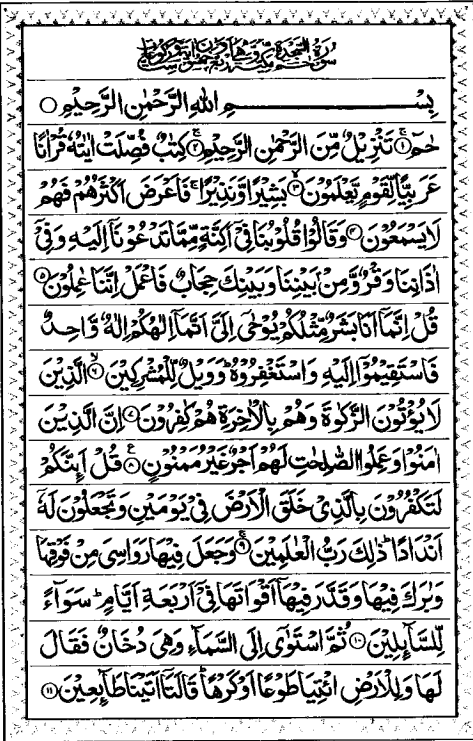 بِسْمِ اللهِ الرَّحْمٰنِ الرَّحِيْمِ
حٰمٓ ۝۱ تَنْزِيْلٌ مِّنَ الرَّحْمٰنِ الرَّحِيْمِ ۝۲ كِتٰبٌ فُصِّلَتْ اٰيٰتُهٗ قُرْاٰنًا
عَرَبِيًّا لِّقَوْمٍ يَّعْلَمُوْنَ ۝۳ بَشِيْرًا وَّنَذِيْرًا ۚ فَاَعْرَضَ اَكْثَرُهُمْ فَهُمْ
لَا يَسْمَعُوْنَ ۝۴ وَقَالُوْا قُلُوْبُنَا فِيْٓ اَكِنَّةٍ مِّمَّا تَدْعُوْنَآ اِلَيْهِ وَفِيْٓ
اٰذَانِنَا وَقْرٌ وَّمِنْۢ بَيْنِنَا وَبَيْنِكَ حِجَابٌ فَاعْمَلْ اِنَّنَا عٰمِلُوْنَ ۝۵
قُلْ اِنَّمَآ اَنَا بَشَرٌ مِّثْلُكُمْ يُوْحٰٓى اِلَيَّ اَنَّمَآ اِلٰهُكُمْ اِلٰهٌ وَّاحِدٌ
فَاسْتَقِيْمُوْٓا اِلَيْهِ وَاسْتَغْفِرُوْهُ ۭ وَوَيْلٌ لِّلْمُشْرِكِيْنَ ۝۶ الَّذِيْنَ
لَا يُؤْتُوْنَ الزَّكٰوةَ وَهُمْ بِالْاٰخِرَةِ هُمْ كٰفِرُوْنَ ۝۷ اِنَّ الَّذِيْنَ
اٰمَنُوْا وَعَمِلُوا الصّٰلِحٰتِ لَهُمْ اَجْرٌ غَيْرُ مَمْنُوْنٍ ۝۸ قُلْ اَىِٕنَّكُمْ
لَتَكْفُرُوْنَ بِالَّذِيْ خَلَقَ الْاَرْضَ فِيْ يَوْمَيْنِ وَتَجْعَلُوْنَ لَهٗٓ
اَنْدَادًا ۭ ذٰلِكَ رَبُّ الْعٰلَمِيْنَ ۝۹ وَجَعَلَ فِيْهَا رَوَاسِيَ مِنْ فَوْقِهَا
وَبٰرَكَ فِيْهَا وَقَدَّرَ فِيْهَآ اَقْوَاتَهَا فِيْٓ اَرْبَعَةِ اَيَّامٍ ۭ سَوَآءً
لِّلسَّآىِٕلِيْنَ ۝۱۰ ثُمَّ اسْتَوٰٓى اِلَى السَّمَآءِ وَهِيَ دُخَانٌ فَقَالَ
لَهَا وَلِلْاَرْضِ ائْتِيَا طَوْعًا اَوْ كَرْهًا ۭ قَالَتَآ اَتَيْنَا طَآىِٕعِيْنَ ۝۱۱